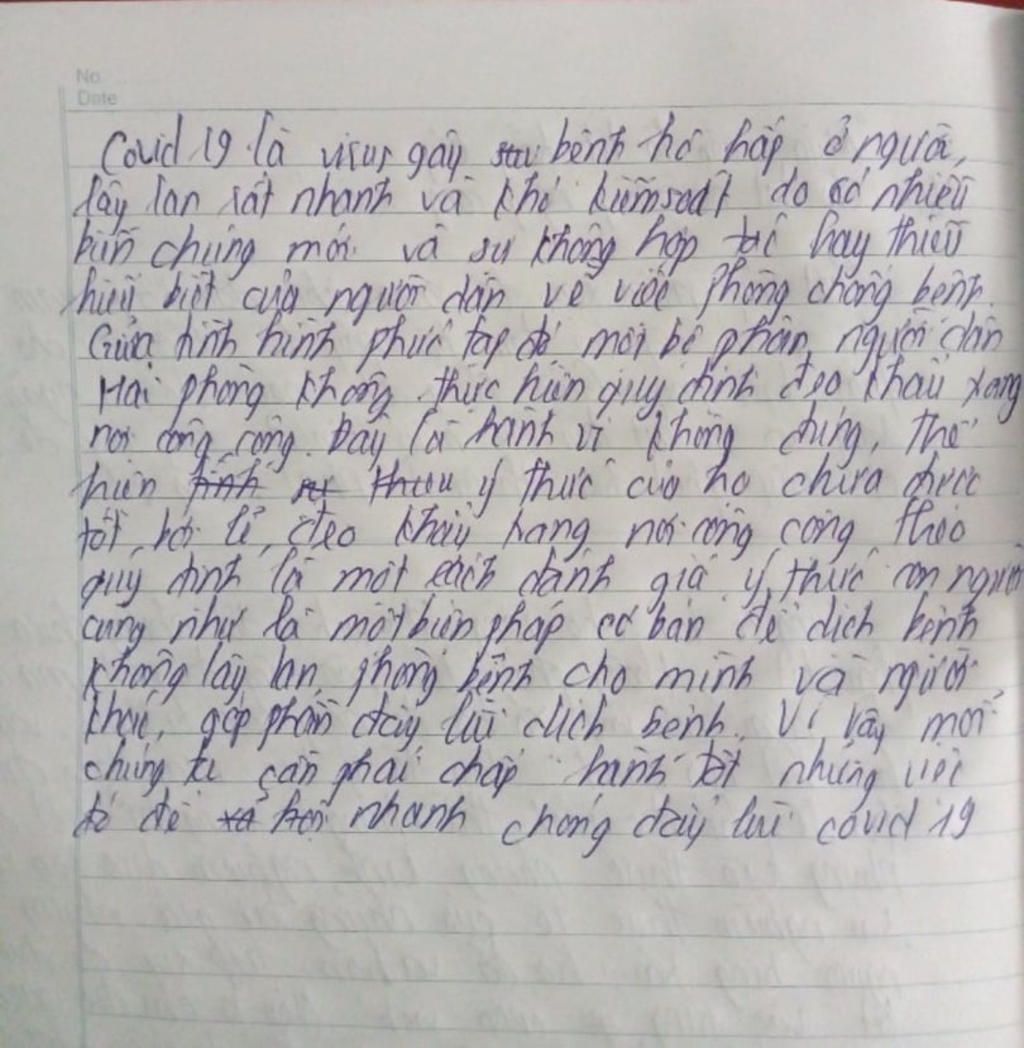 No
Date
Covid 19 là virus gây bệnh hô hấp ở người,
lây lan rất nhanh và khó kiểm soát do có nhiều
biến chủng mới và sự không hợp tác hay thiếu
hiểu biết của người dân về việc phòng chống bệnh.
Giữa tình hình phức tạp đó một bộ phận người dân
Hải phòng không thực hiện quy định đeo khẩu trang
nơi công cộng. Đây là hành vi không đúng, thể
hiện ý thức của họ chưa được
tốt, bởi lẽ, đeo khẩu trang nơi công cộng theo
quy định là một cách đánh giá ý thức con người
cũng như là một biện pháp cơ bản để dịch bệnh
không lây lan, phòng bệnh cho mình và người
khác, góp phần đẩy lùi dịch bệnh. Vì vậy mỗi
chúng ta cần phải chấp hành tốt những việc
đó để nhanh chóng đẩy lùi covid 19